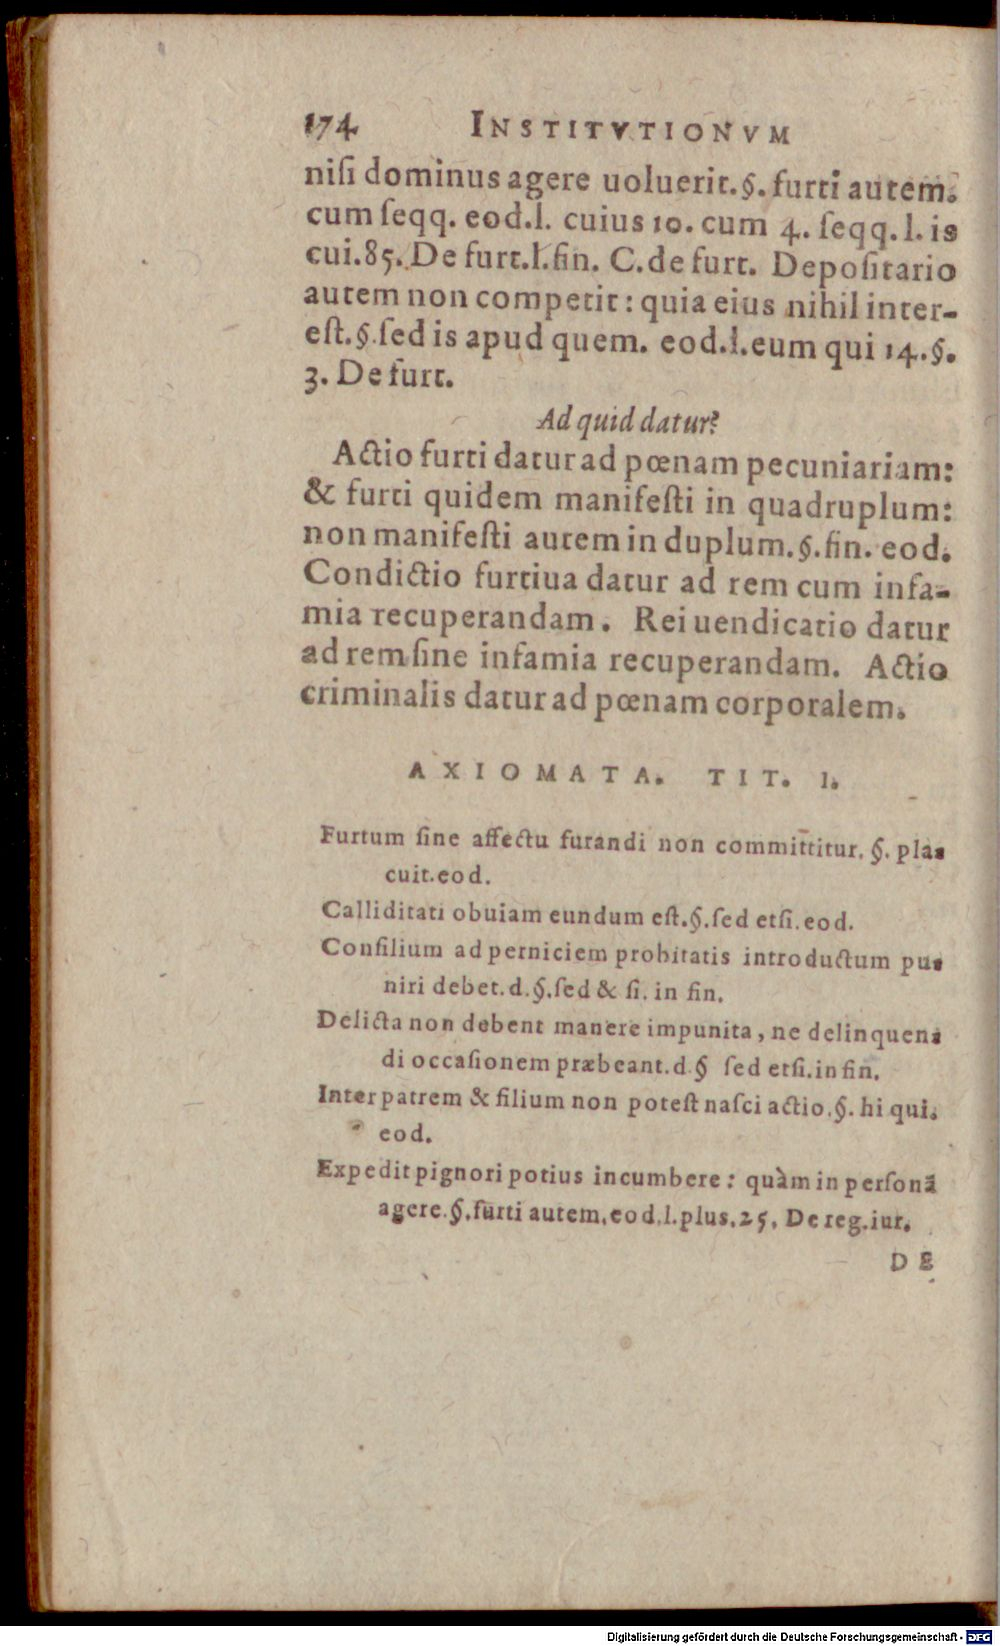 174 INSTITVTIONVM
niſi dominus agere uoluerit. §. furti autem.
cum ſeqq. eod. l. cuius 10. cum 4. ſeqq. l. is
cui. 85. De furt. l. fin. C. de furt. Depoſitario
autem non competit: quia eius nihil inter-
eſt. §. ſed is apud quem. eod. l. eum qui 14. §.
3. De furt.
Ad quid datur?
Actio furti datur ad pœnam pecuniariam:
& furti quidem manifeſti in quadruplum:
non manifeſti autem in duplum. §. fin. eod.
Condictio furtiua datur ad rem cum infa-
mia recuperandam. Rei uendicatio datur
ad rem ſine infamia recuperandam. Actio
criminalis datur ad pœnam corporalem.
AXIOMATA. TIT. 1.
Furtum ſine affectu furandi non committitur. §. pla-
cuit. eod.
Calliditati obuiam eundum eſt. §. ſed etſi. eod.
Conſilium ad perniciem probitatis introductum pu-
niri debet. d. §. ſed & ſi. in fin.
Delicta non debent manere impunita, ne delinquen-
di occaſionem præbeant. d. § ſed etſi. in fin.
Inter patrem & filium non poteſt naſci actio. §. hi qui.
eod.
Expedit pignori potius incumbere: quàm in perſonã
agere. §. furti autem. eod. l. plus. 25. De reg. iur.
DE
Digitalisierung gefördert durch die Deutsche Forschungsgemeinschaft - DFG